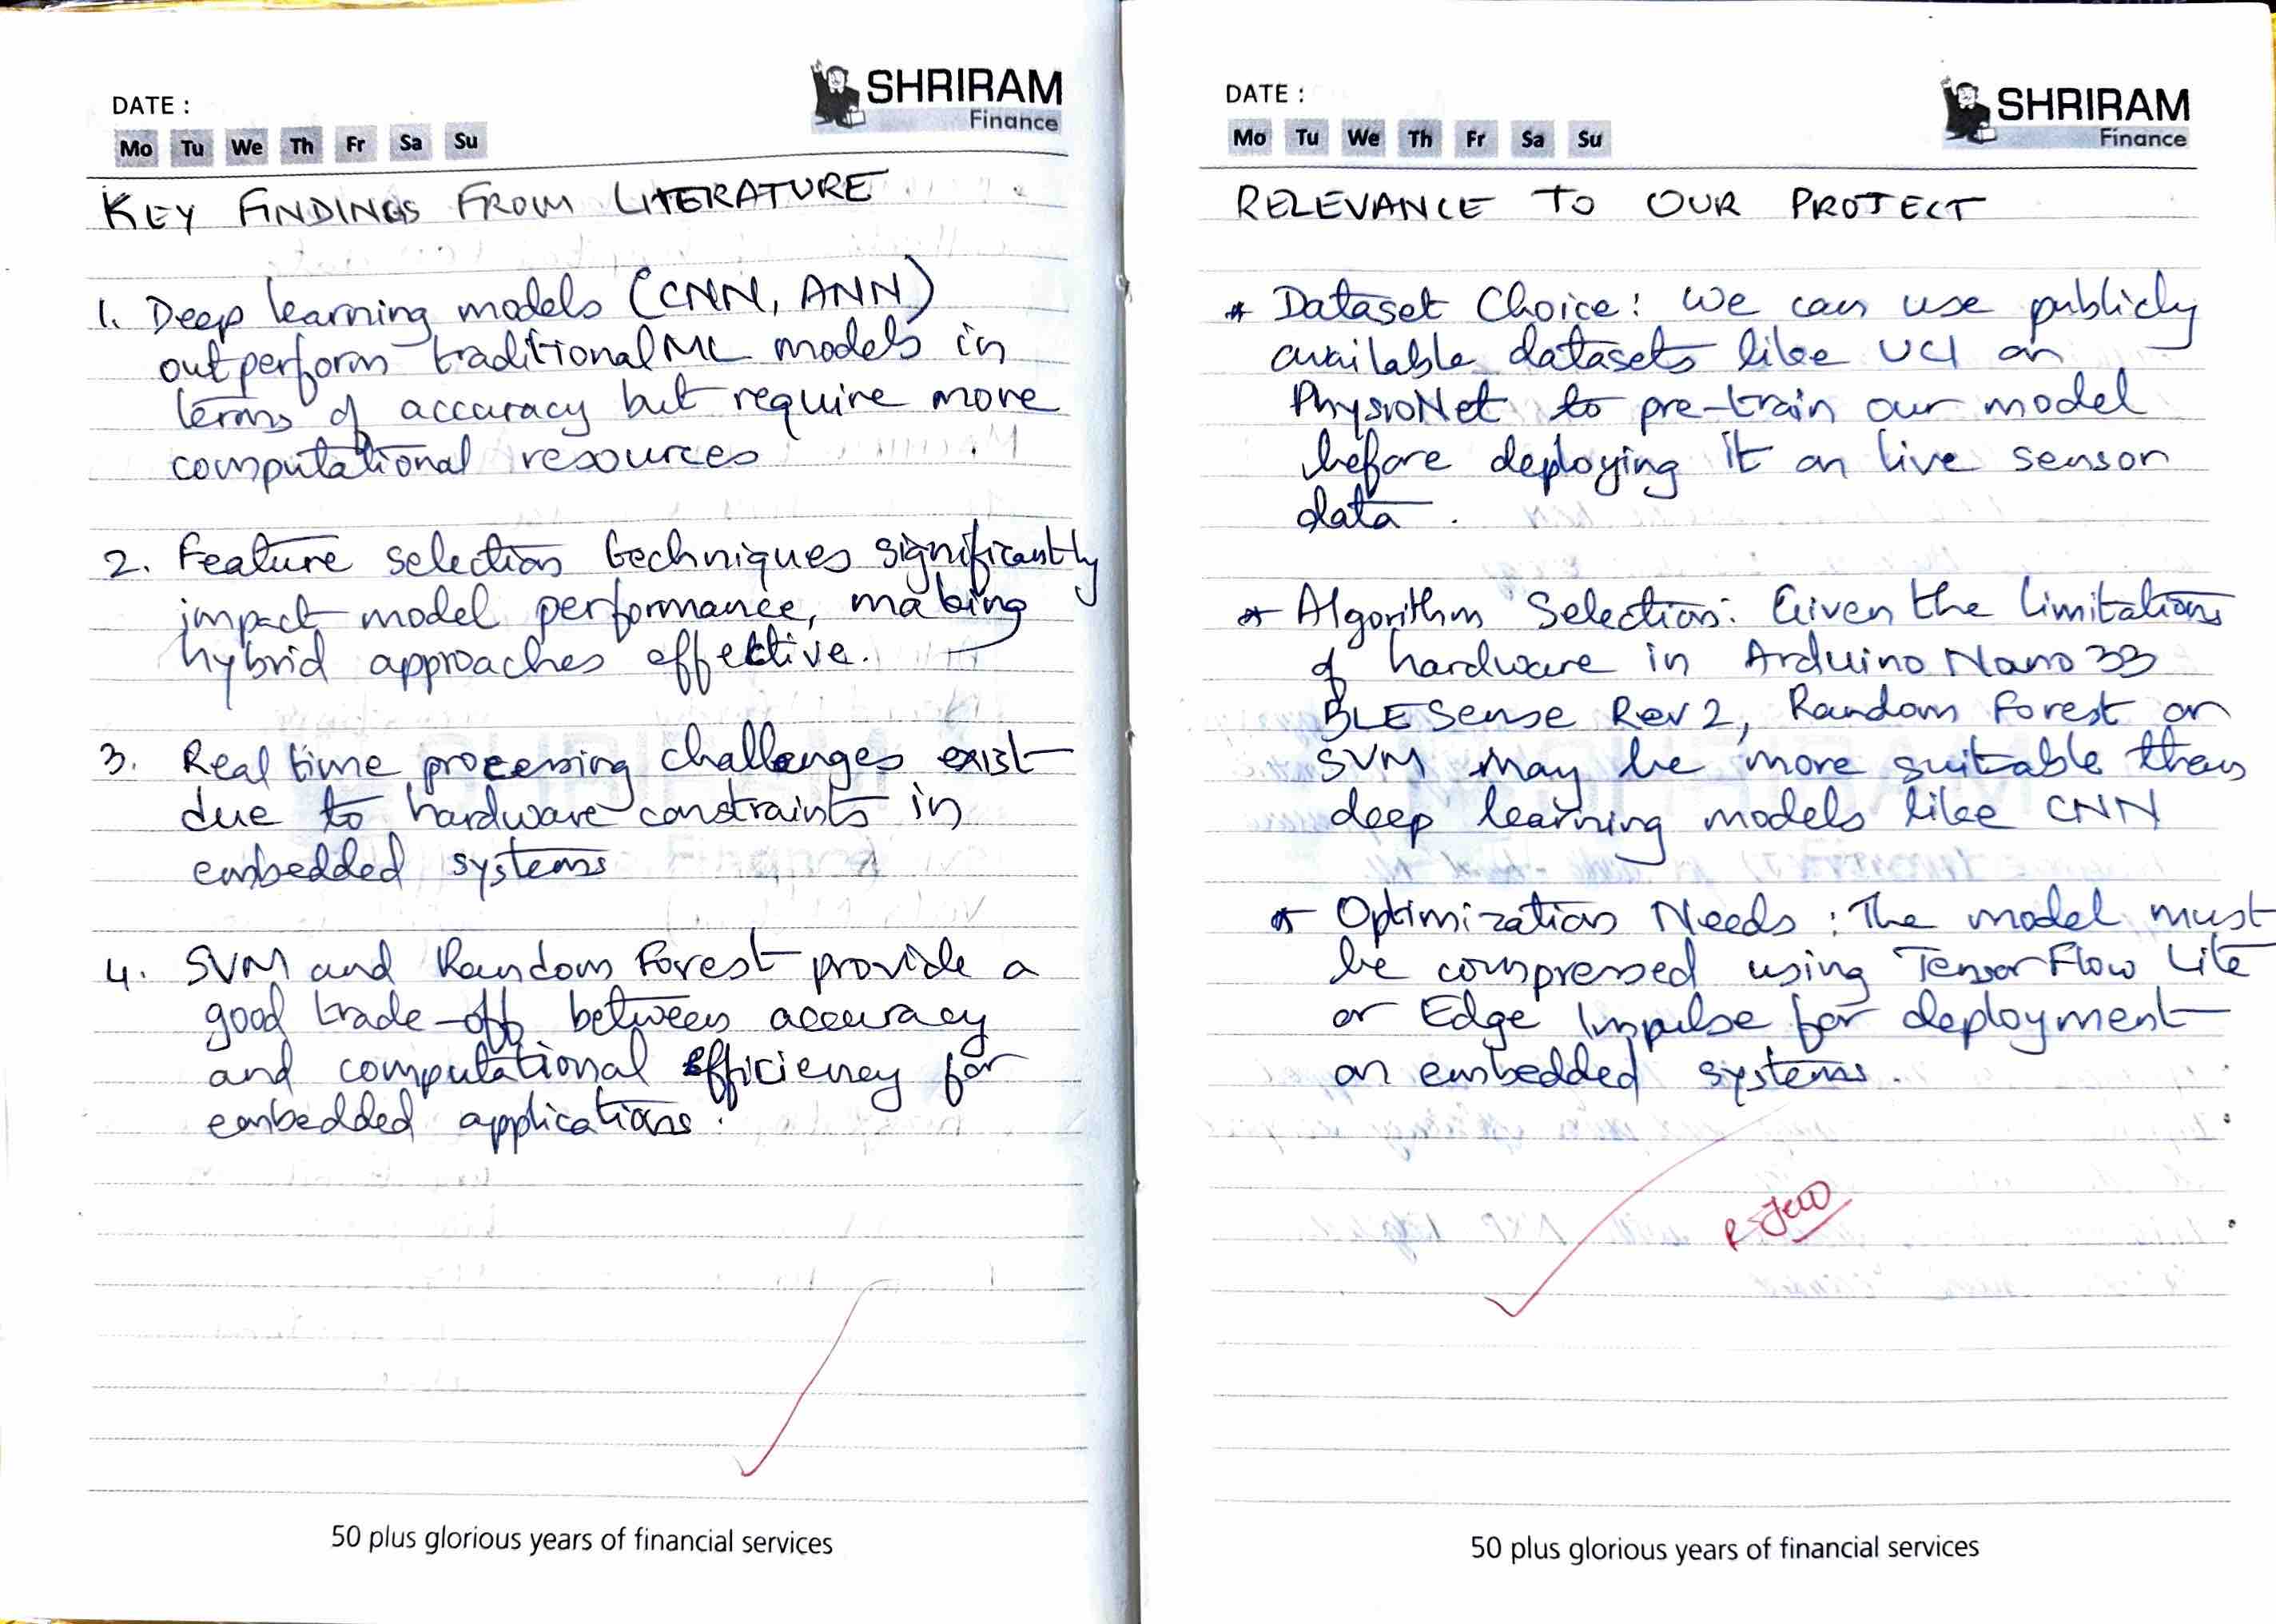 DATE :
SHRIRAM
Finance
Mo Tu We Th Fr Sa Su
KEY FINDINGS FROM LITERATURE
1. Deep learning models (CNN, ANN)
outperform traditional ML models in
terms of accuracy but require more
computational resources
2. Feature selection techniques significantly
impact model performance, making
hybrid approaches effective.
3. Real time processing challenges exist
due to hardware constraints in
embedded systems
4. SVM and Random Forest provide a
good trade-off between accuracy
and computational efficiency for
embedded applications.
50 plus glorious years of financial services
DATE :
SHRIRAM
Finance
Mo Tu We Th Fr Sa Su
RELEVANCE TO OUR PROJECT
* Dataset Choice: We can use publicly
available datasets like UCI or
PhysioNet to pre-train our model
before deploying it on live sensor
data.
* Algorithm Selection: Given the limitations
of hardware in Arduino Nano 33
BLE Sense Rev 2, Random Forest or
SVM may be more suitable than
deep learning models like CNN
* Optimization Needs : The model must
be compressed using TensorFlow Lite
or Edge Impulse for deployment
on embedded systems.
50 plus glorious years of financial services